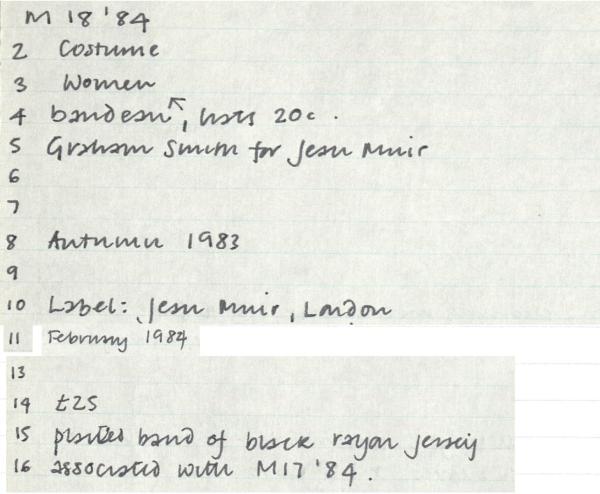 M 18 '84
2 Costume
3 Women
4 bandeau, hats 20c.
5 Graham Smith for Jean Muir
6
7
8 Autumn 1983
9
10 Label: Jean Muir, London
11 February 1984
13
14 £25
15 plaited band of black rayon jersey
16 associated with M17 '84.